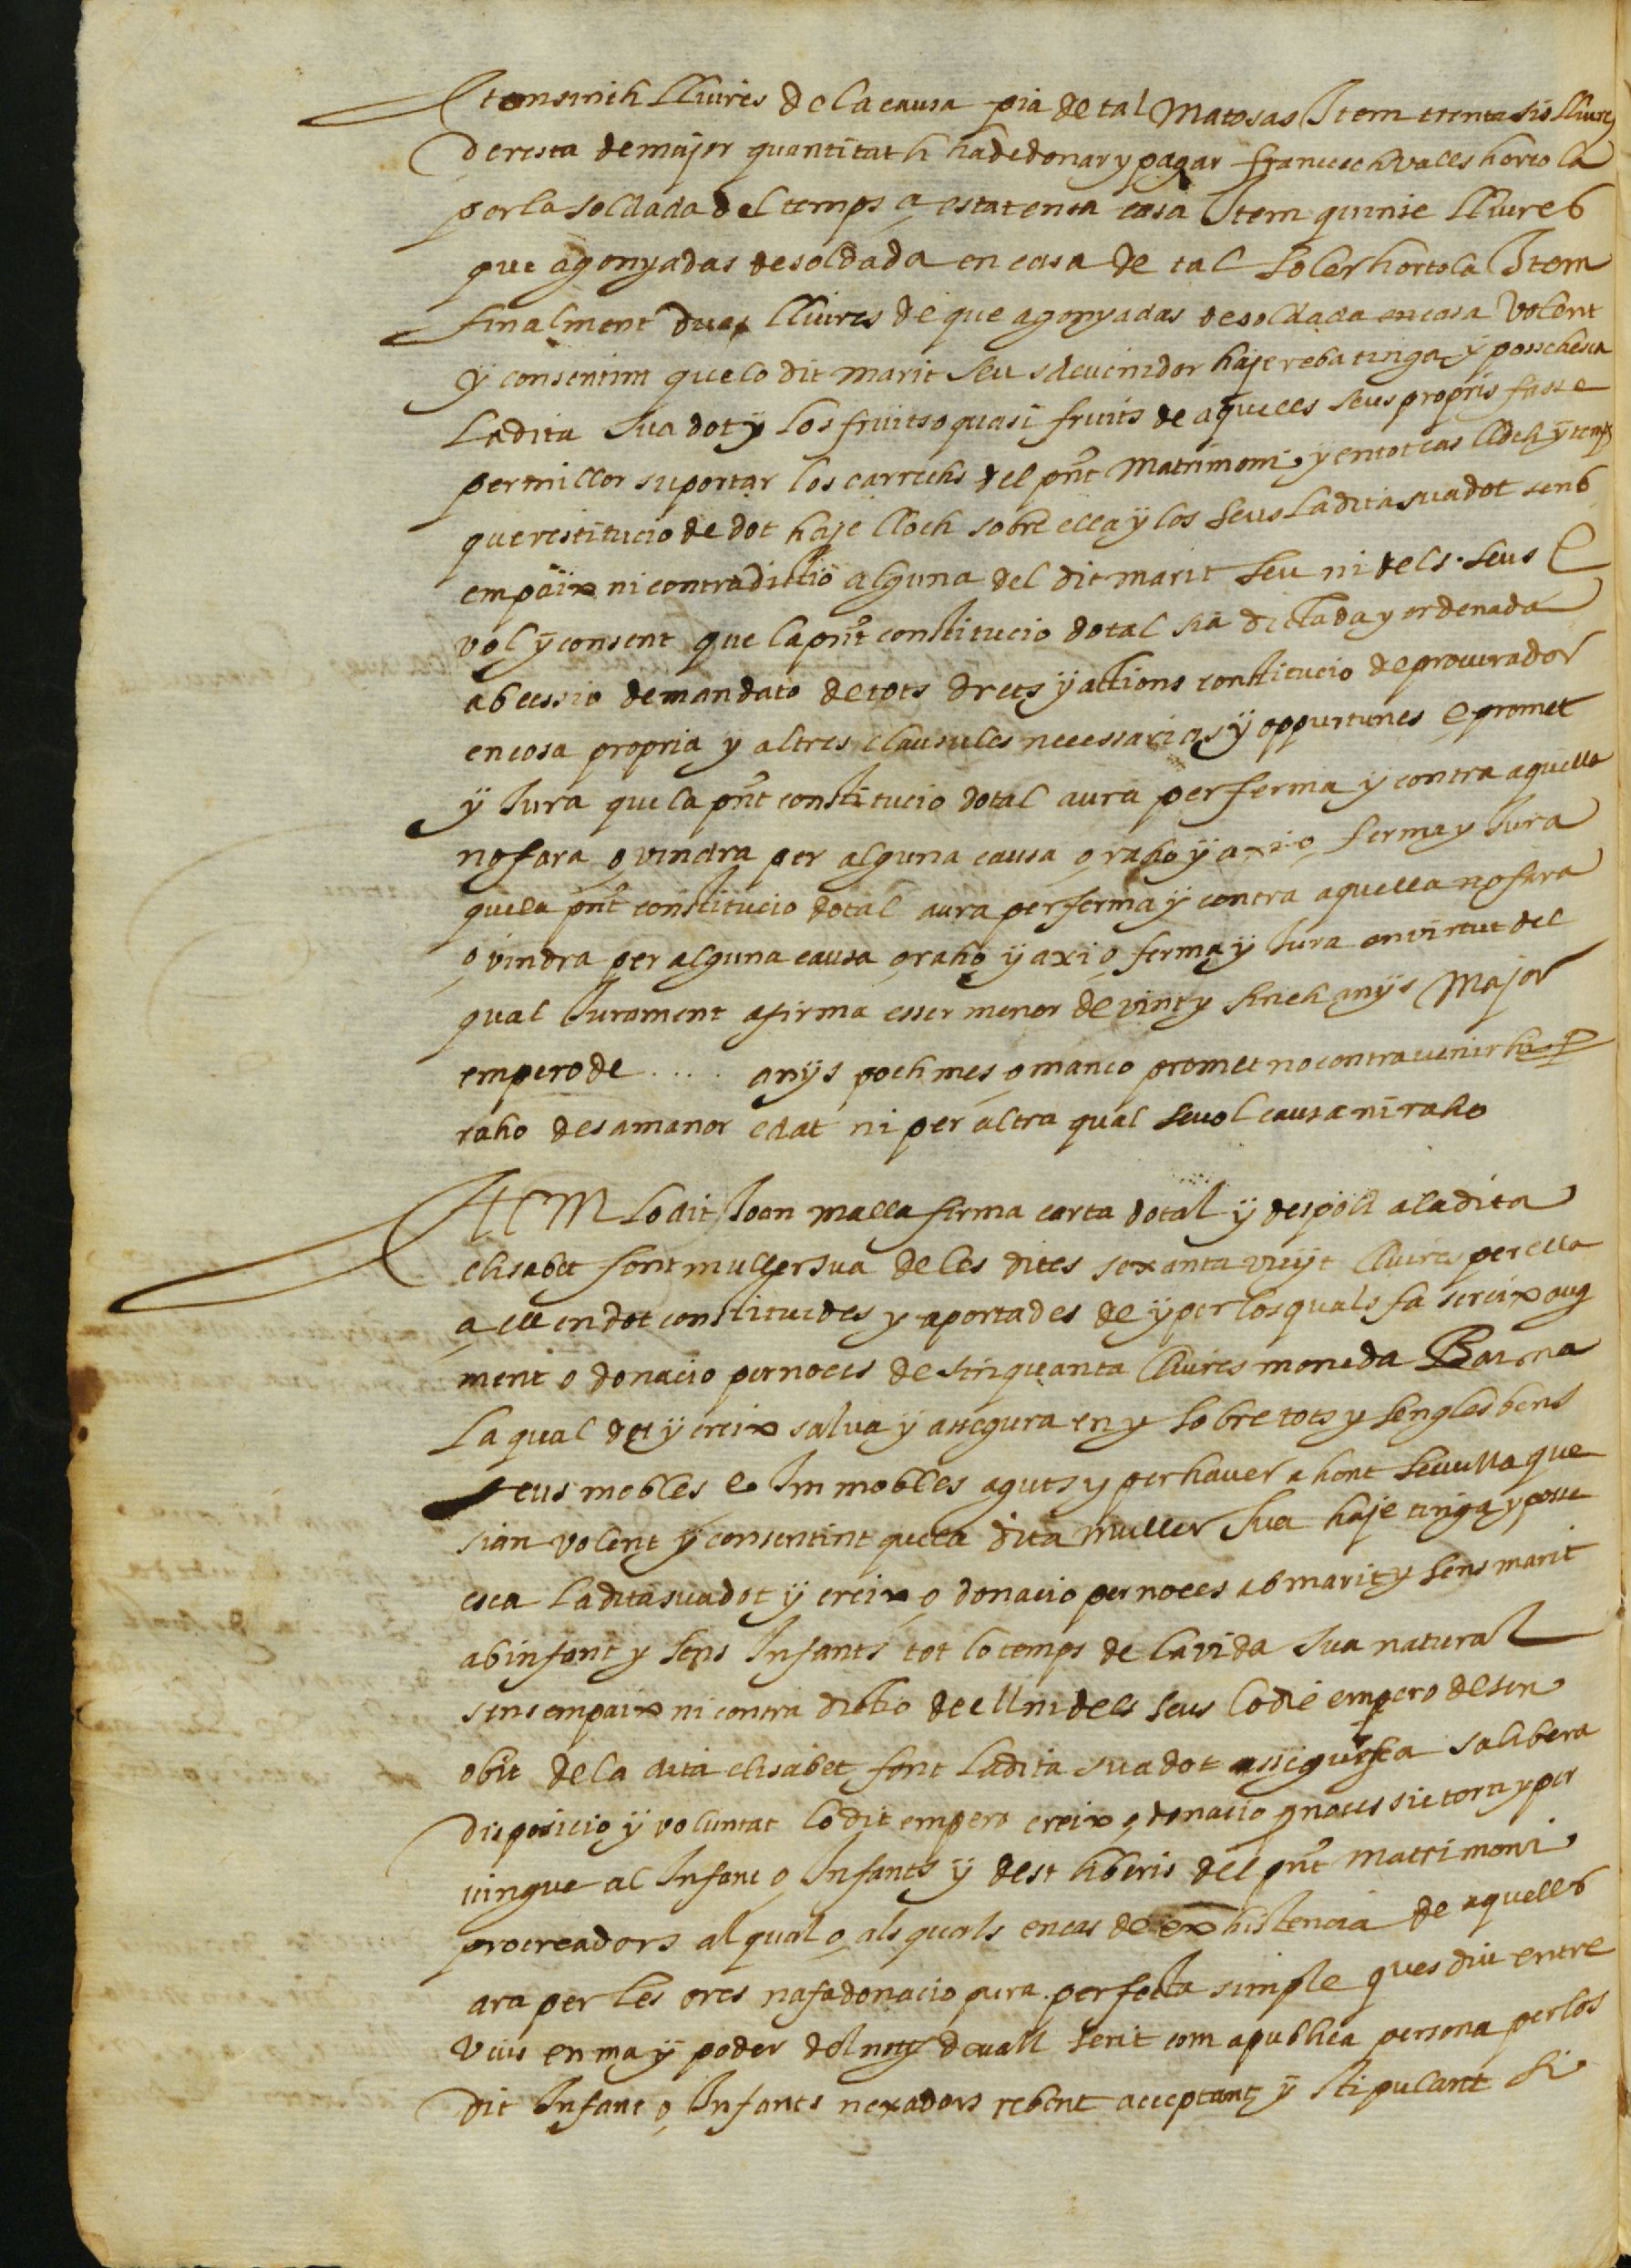 Item sinch lliures de la causa pia de tal Matosas Item trenta sis lliures
de resta de major quantitat li ha de donar y pagar francech valls hortola
per la soldada del temps a estat en sa casa Item quinse lliures
que a gonyadas de soldada en casa de tal soler hortola Item
finalment dues lliures de que a gonyadas de soldada en casa volent
y consentint que lo dit marit seu sdevenidor haje reba tinga y possehesca
la dita sua dot y los fruits o quasi fruits de aquells seus propris fasse
per millor suportar los carrechs del pnt Matrimoni y en tot cas lloch y temps
que restitucio de dot haje lloch sobre ella y los seus la dita sua dot sens
empaix ni contradictio alguna del dit marit seu ni dels seus E
vol y consent que la pnt constitucio dotal sia dictada y ordenada
ab cessio de mandato de tots drets y actions constitucio de procurador
en cosa propria y altres clausules necessarias y oppurtunes e promet
y Jura que la pnt constitucio dotal aura per ferma y contra aquella
no fara o vindra per alguna causa o raho y axi o ferma y Jura
que la pnt constitucio dotal aura per ferma y contra aquella no fara
o vindra per alguna causa o raho y axi o ferma y Jura en virtut del
qual Jurament afirma esser menor de vint y sinch anys Major
empero de .... anys poch mes o manco promet no contravenir hi p
raho de sa manor edat ni per altra qual sevol causa ni raho
ITEM lo dit Joan malla firma carta dotal y despoli a la dita
elisabet font muller sua de les dites sexanta vuyt lliures per ella
a ell en dot constituides y aportades de y per los quals fa screix aug
ment o donacio per noces de sinquanta lliures moneda Barna
la qual dot y creix salva y assegura en y sobre tots y sengles bens
seus mobles e Immobles aguts y per haver a hont sevulla que
sian volent y consentint que la dita muller sua haje tinga y posse
esca la dita sua dot y creix o donacio per noces ab marit y sens marit
ab infant y sens Infants tot lo temps de la vida sua natural
sens empaix ni contra dictio de ell ni dels seus lo die empero del seu
obit de la dita elisabet font la dita sua dot sa libera
disposicio y voluntat lo dit empero creix o donacio p noces sie torn y per
vingue al Infant o Infants y dest liberis del pnt matrimoni
procreadors al qual o als quals en cas de exhistencia de aquells
ara per les ores na fa donacio pura perfecta simple ques diu entre
vius en ma y poder del not devall scrit com a publica persona per los
dit Infant o Infants nexadors rebent acceptant y stipulant Si